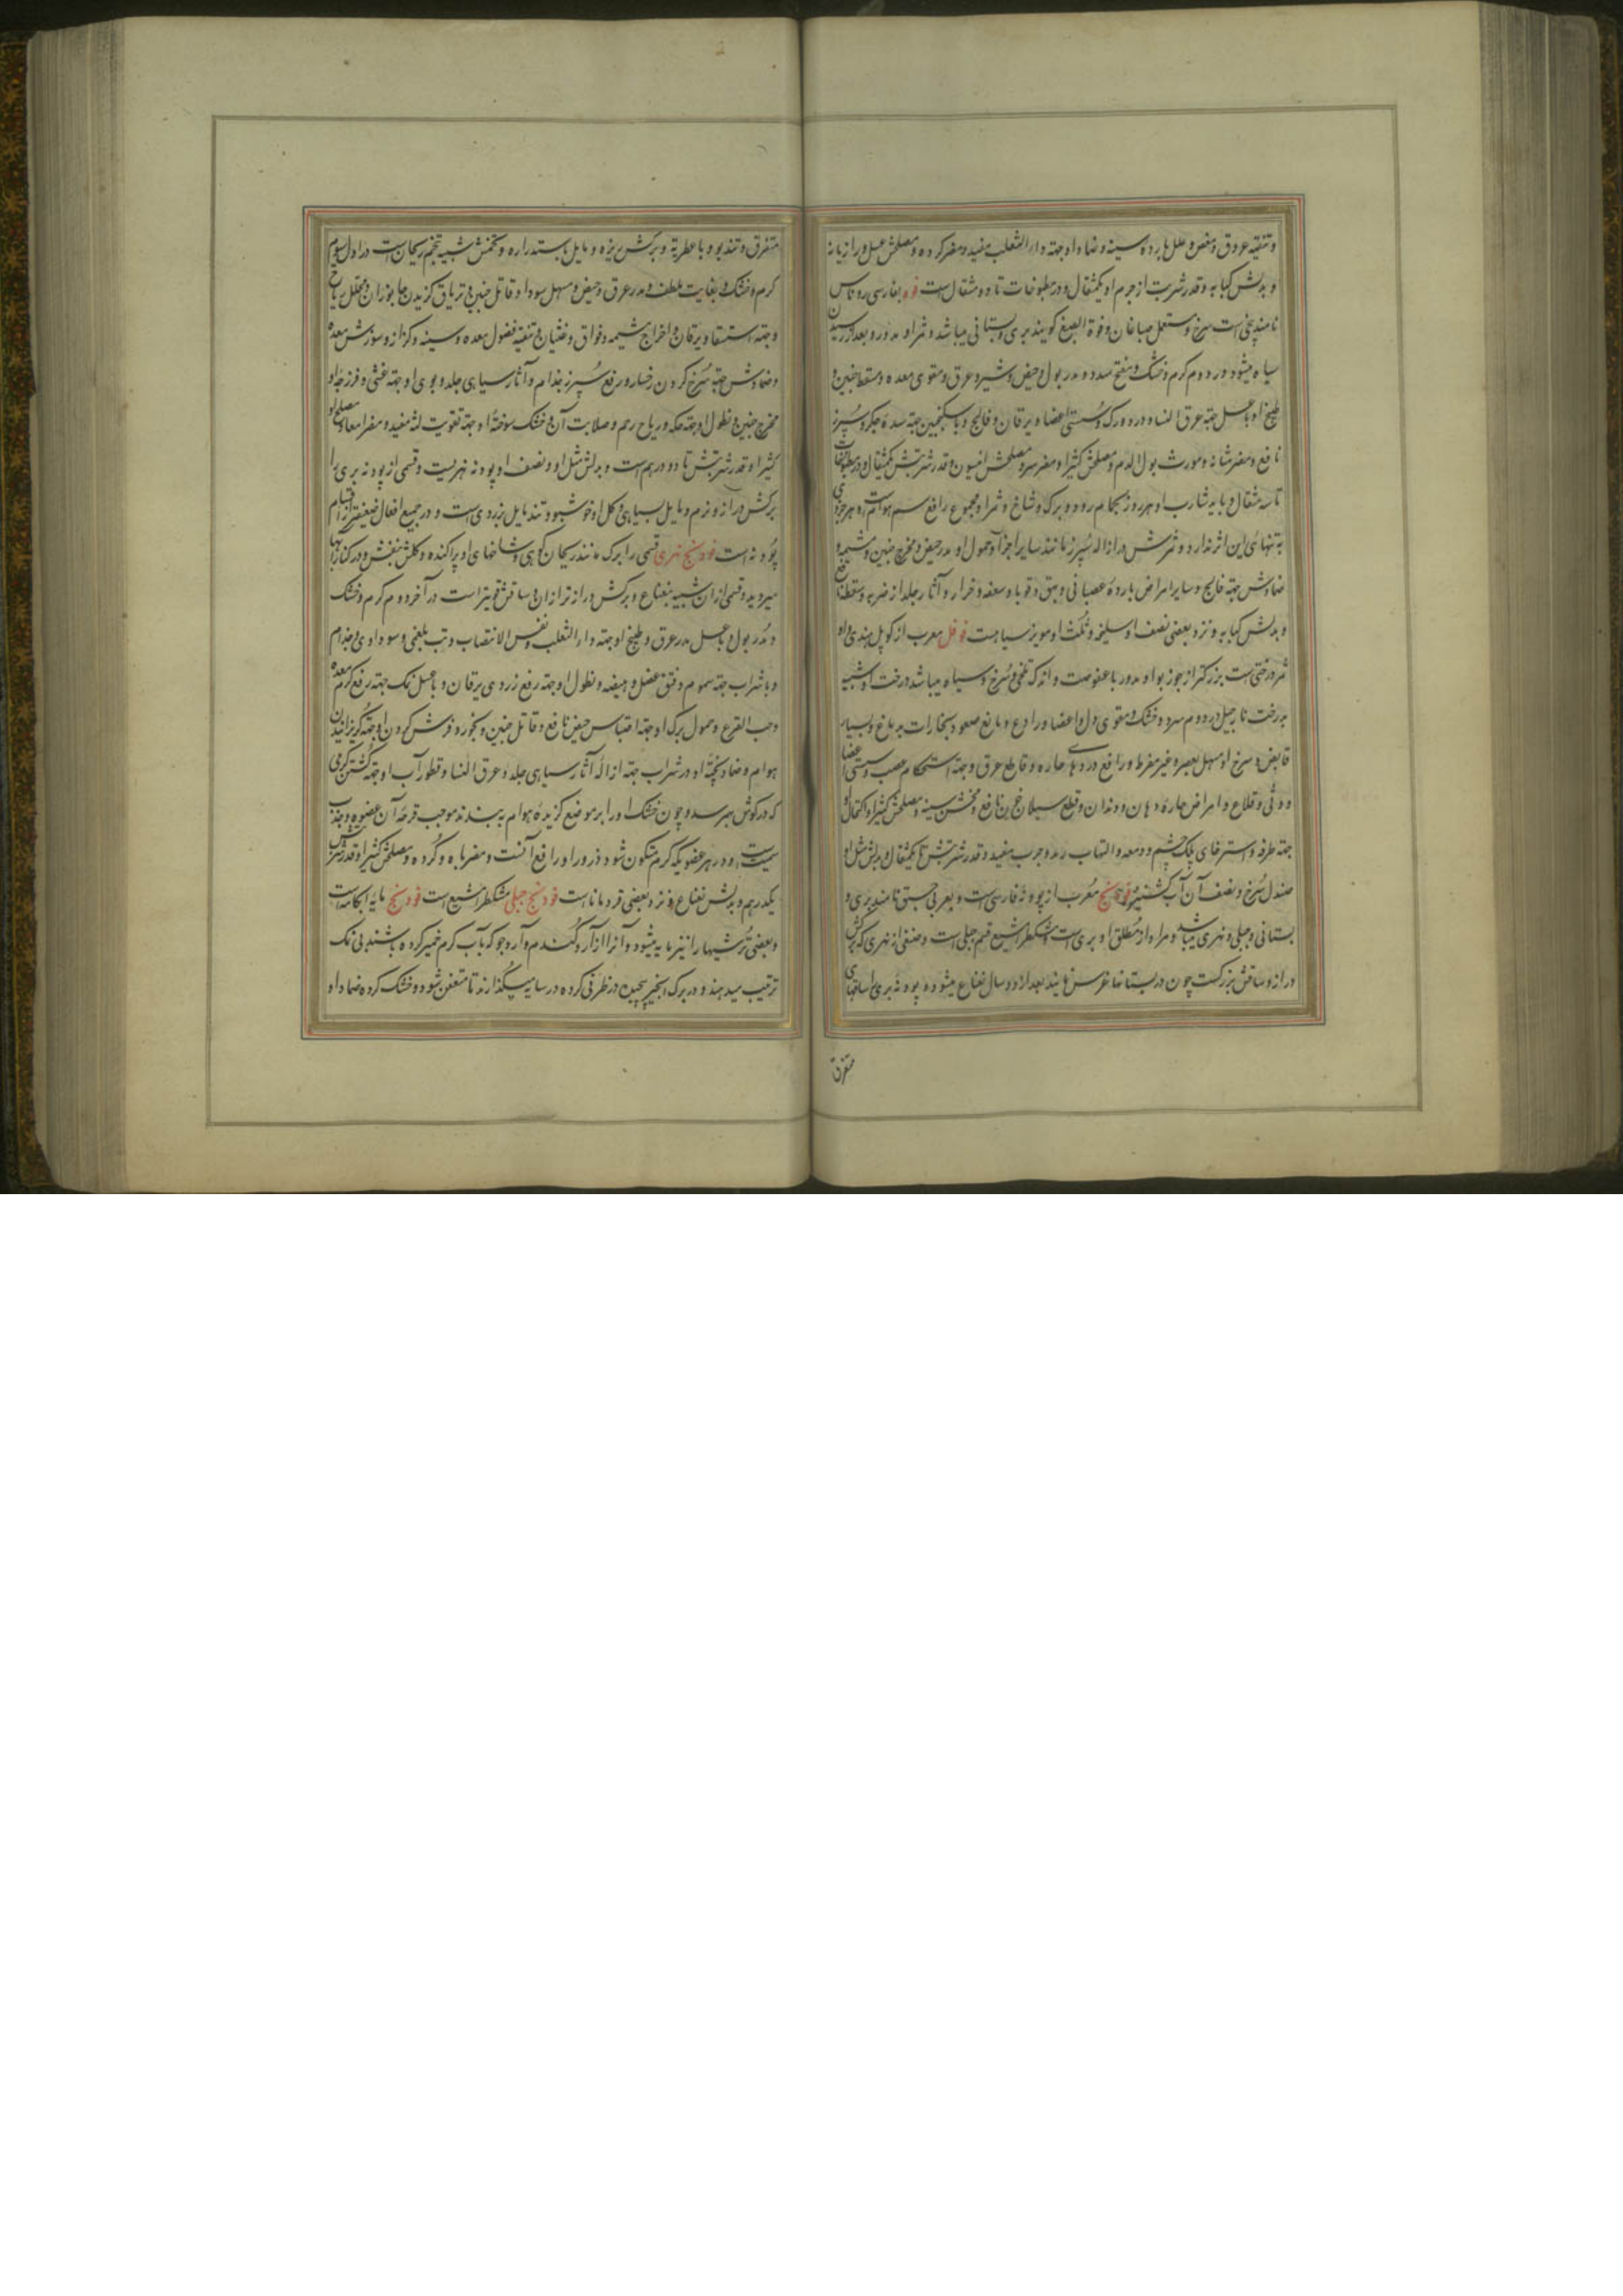 و تنقیه عروق و مغص و علل بارده سینه و ضماد او جهة داء الثعلب مفید و مضر کرده و مصلحش عسل و رازیانه
و بدلش کبابه و قدر شربت از جرم او یکمثقال و در مطبوخات تا دو مثقال است فوه بفارسی روناس
نامند بیخی است سرخ و مستعمل صباغان و فوة الصبغ گویند بری و بستانی میباشد و ثمر او مدور و بعد از رسیدن
سیاه میشود در دوم گرم و خشک و مفتح سدد و مدر بول و حیض و شیر و عرق و مقوی معده و مسقط جنین و
طبیخ او با عسل جهة عرق النساء و درد ورک و سستی اعضا و یرقان و فالج و با سکنجبین جهة سده جگر و سپرز
نافع و مضر مثانه و مورث بول الدم و مصلحش کثیرا و مضر سر و مصلحش انیسون و قدر شربتش یکمثقال و در مطبوخات
تا سه مثقال و باید شارب او هر روز بحمام رود و برگ و شاخ و ثمر او مجموع رافع سم هوام است و هر جزوی
به تنهائی این اثر ندارد و ثمرش در ازاله سپرز مانند سایر اجزا و حمول او مدر حیض و مخرج جنین و مشیمه و
ضمادش جهة فالج و سایر امراض بارده عصبانی و بهق و قوبا و سعفه و خراز و آثار جلد از ضربه و سقطه نافع
و بدلش کبابه و نزد بعضی نصف او سلیخه و ثلث او مویز سیاهست فوفل معرب از کوپل هندی و او
ثمر درختی است بزرگتر از جوز بوا و مدور با عفوصت و اندک تلخی و سرخ و سیاه میباشد درخت او شبیه
بدرخت نارجیل در دوم سرد و خشک و مقوی دل و اعضا و رادع و مانع صعود بخارات بدماغ و بسیار
قابض و سرخ او مسهل بعصر و غیر مفرط و رافع دردهای حاره و قاطع عرق و جهة استحکام عصب و سستی اعضا
و وثی و قلاع و امراض حاره دهان و دندان و قطع سیلان خون نافع و مخشن سینه و مصلحش کثیرا و اکتحال او
جهة طرفه و استرخای پلک چشم و دمعه و التهاب رمد و جرب مفید و قدر شربتش تا یکمثقال و بدلش مثل او
صندل سرخ و نصف آن آب گشنیز فودنج معرب از پودنه فارسی است و بعربی حبق نامند بری و
بستانی و جبلی و نهری میباشد و مراد از مطلق او بری است و مشکطرامشیع قسم جبلی است و صنفی از نهری که برگش
دراز و ساقش بزرگست چون در بستانها غرس نمایند بعد از دو سال نعناع میشود و پودنه بری را ساقهای
متفرق
متفرق و تندبو و با عطریة و برگش ریزه و مایل باستداره و تخمش شبیه تخم ریحان است در اول سوم
گرم و خشک و بغایت ملطف و مدر عرق و حیض و مسهل سودا و قاتل جنین و تریاق گزیدن جانوران و محلل ریاح
و جهة استسقا و یرقان و اخراج مشیمه و فواق و غثیان و تنقیه فضول معده و سینه و کزاز و سوزش معده
و ضمادش جهة سرخ کردن رخسار و رفع سپرز و جذام و آثار سیاهی جلد و بوی او جهة غشی و فرزجه او
مخرج جنین و نطول او جهة حکه و ریاح رحم و صلابت آن و خشک سوخته او جهة تقویت لثه مفید و مضر امعا و مصلح او
کثیرا و قدر شربتش تا دو درهم است و بدلش مثل او و نصف او پودنه نهریست و قسمی از پودنه بری را
برگش دراز و نرم و مایل بسیاهی و گل او خوشبو و تند مایل بزردی است و در جمیع افعال ضعیفتر از اقسام
پودنه است فودنج نهری قسمی را برگ مانند ریحان کوهی و شاخهای او پراکنده و گلش بنفش و در کنار آبها
میروید و قسمی از آن شبیه بنعناع و برگش درازتر از آن و ساقش قویتر است در آخر دوم گرم و خشک
و مدر بول و با عسل مدر عرق و طبیخ او جهة داء الثعلب و نفس الانتصاب و تب بلغمی و سوداوی و جذام
و با شراب جهة سموم و فتق عضل و هیضه و نطول او جهة رفع زردی یرقان و با عسل و نمک جهة رفع کرم معده
و حب القرع و حمول برگ او جهة احتباس حیض نافع و قاتل جنین و بخور و فرش کردن او جهة گریزانیدن
هوام و ضماد پخته او در شراب جهة ازاله آثار سیاهی جلد و عرق النسا و قطور آب او جهة کشتن کرمی
که در گوش بهم رسد و چون خشک او را بر موضع گزیده هوام به بندند موجب قرحه آن عضو و جذب
سمیت است و در هر عضویکه کرم متکون شود ذرور او رافع آنست و مضر باه و گرده و مصلحش کثیرا و قدر شربتش
یکدرهم و بدلش نعناع و نزد بعضی قردمانا است فودنج جبلی مشکطرامشیع است فودنج مایه آبکامه است
و بعضی ترشیها را نیز مایه میشود و آنرا از آرد گندم و آرد جو که بآب گرم خمیر کرده باشند بی نمک
ترتیب میدهند و در برگ انجیر پیچیده در ظرفی کرده در سایه میگذارند تا متعفن شود و خشک کرده ضماد او